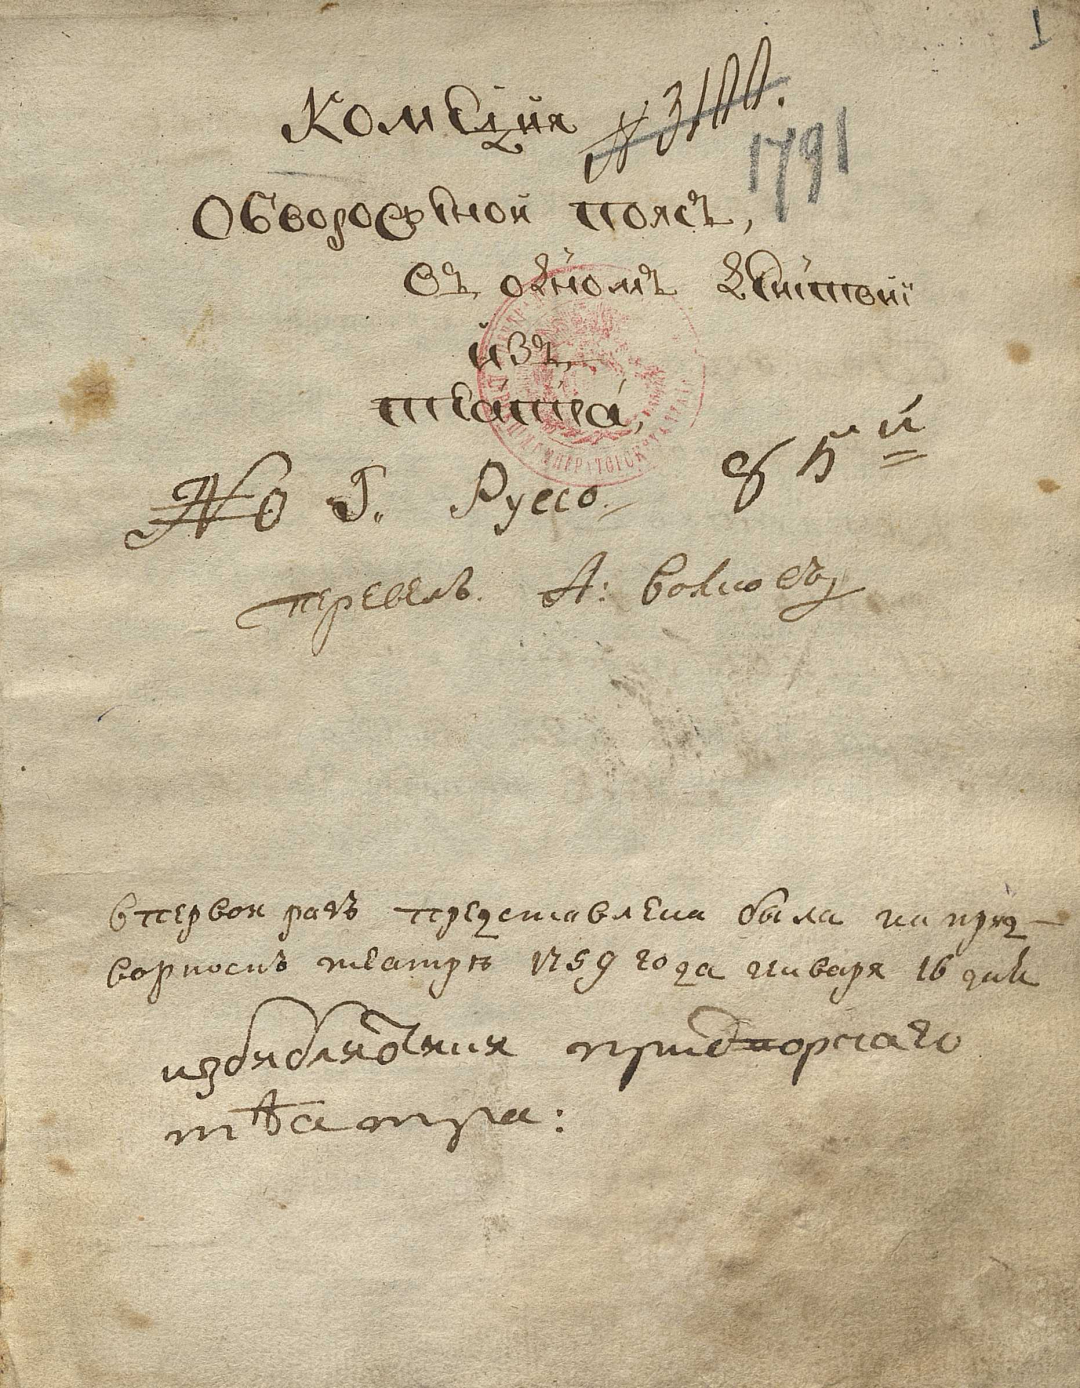 1
Комедия № 3100.
1791
Обворожѣнной поясъ,
въ одномъ дѣйствіи
изъ,
театра,
№ Г. Руссо.
перевелъ. А: Волковъ
в первои разъ представлена была на прид-
ворномъ театрѣ 1759 года января 16 дня
из библиотекии придворнаго
тѣатра: